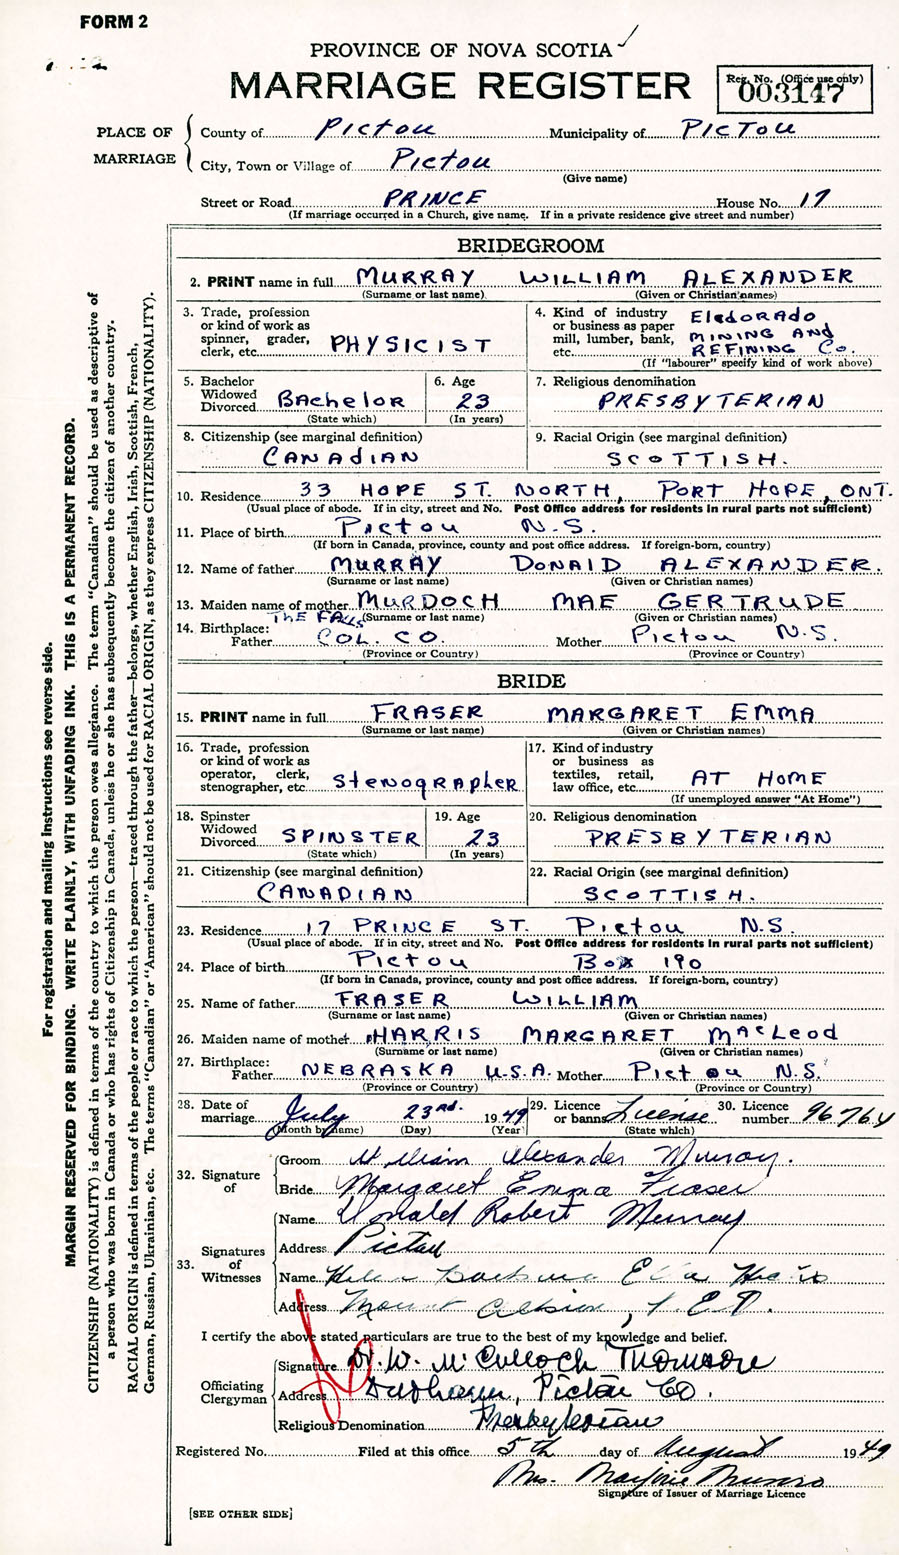 FORM 2
PROVINCE OF NOVA SCOTIA
MARRIAGE REGISTER
Reg. No. (Office use only)
003147
PLACE OF MARRIAGE
County of PICTOU Municipality of PICTOU
City, Town or Village of PICTOU
(Give name)
Street or Road PRINCE House No. 17
(If marriage occurred in a Church, give name. If in a private residence give street and number)
BRIDEGROOM
2. PRINT name in full MURRAY WILLIAM ALEXANDER
(Surname or last name) (Given or Christian names)
3. Trade, profession or kind of work as spinner, grader, clerk, etc. PHYSICIST
4. Kind of industry or business as paper mill, lumber, bank, etc. ElDORADO MINING AND REFINING Co.
(If "labourer" specify kind of work above)
5. Bachelor Widowed Divorced BAChelOR
(State which)
6. Age 23
(In years)
7. Religious denomination PRESBYTERIAN
8. Citizenship (see marginal definition)
CANAdIAN
9. Racial Origin (see marginal definition)
SCOTTISH.
10. Residence 33 HOPE ST. NORTH, PORT HOPE, ONT.
(Usual place of abode. If in city, street and No. Post Office address for residents in rural parts not sufficient)
11. Place of birth PICTOU N.S.
(If born in Canada, province, county and post office address. If foreign-born, country)
12. Name of father MURRAY DONALD ALEXANDER.
(Surname or last name) (Given or Christian names)
13. Maiden name of mother MURDOCH MAE GERTRUDE
(Surname or last name) (Given or Christian names)
14. Birthplace: Father THE FALLS COL. CO. Mother PICTOU N.S.
(Province or Country) (Province or Country)
BRIDE
15. PRINT name in full FRASER MARGARET EMMA
(Surname or last name) (Given or Christian names)
16. Trade, profession or kind of work as operator, clerk, stenographer, etc. StenogRAphER
17. Kind of industry or business as textiles, retail, law office, etc. AT HOME
(If unemployed answer "At Home")
18. Spinster Widowed Divorced SPINSTER
(State which)
19. Age 23
(In years)
20. Religious denomination
PRESBYTERIAN
21. Citizenship (see marginal definition)
CANADIAN
22. Racial Origin (see marginal definition)
SCOTTISH.
23. Residence 17 PRINCE ST. PICTOU N.S.
(Usual place of abode. If in city, street and No. Post Office address for residents in rural parts not sufficient)
24. Place of birth PICTOU BOX 190
(If born in Canada, province, county and post office address. If foreign-born, country)
25. Name of father FRASER WILLIAM
(Surname or last name) (Given or Christian names)
26. Maiden name of mother HARRIS MARGARET MacLeod
(Surname or last name) (Given or Christian names)
27. Birthplace: Father NEBRASKA U.S.A. Mother PICTOU N.S.
(Province or Country) (Province or Country)
28. Date of marriage July 23rd. 1949
(Month by name) (Day) (Year)
29. Licence or banns License
(State which)
30. Licence number 96764
32. Signature of
Groom William Alexander Murray.
Bride Margaret Emma Fraser
33. Signatures of Witnesses
Name Donald Robert Murray
Address Pictou
Name Helen Barbara Ella
Address Mount Albion, P.E.I.
I certify the above stated particulars are true to the best of my knowledge and belief.
Officiating Clergyman
Signature W. McCulloch Thomson
Address Durham, Pictou Co.
Religious Denomination Presbyterian
Registered No. Filed at this office 5th day of August 1949
Mrs. Marjorie Munro
Signature of Issuer of Marriage Licence
[SEE OTHER SIDE]
For registration and mailing instructions see reverse side.
MARGIN RESERVED FOR BINDING. WRITE PLAINLY, WITH UNFADING INK. THIS IS A PERMANENT RECORD.
CITIZENSHIP (NATIONALITY) is defined in terms of the country to which the person owes allegiance. The term "Canadian" should be used as descriptive of
a person who was born in Canada or who has rights of Citizenship in Canada, unless he or she has subsequently become the citizen of another country.
RACIAL ORIGIN is defined in terms of the people or race to which the person—traced through the father—belongs, whether English, Irish, Scottish, French,
German, Russian, Ukrainian, etc. The terms "Canadian" or "American" should not be used for RACIAL ORIGIN, as they express CITIZENSHIP (NATIONALITY).